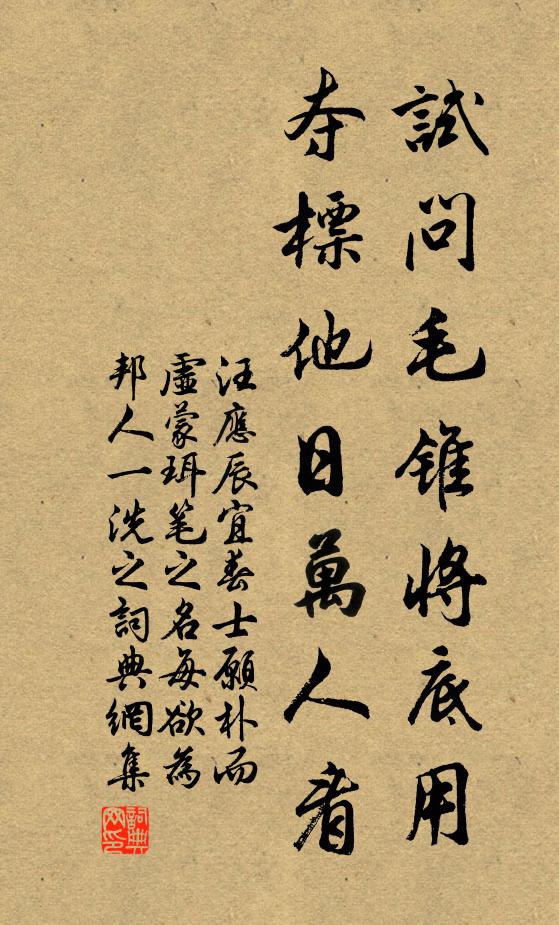 試問毛錐將底用
夺標他日萬人看
汪應辰宜春士願朴而
虛蒙珥笔之名每欲為
邦人一洗之詞典網集
詞典网印